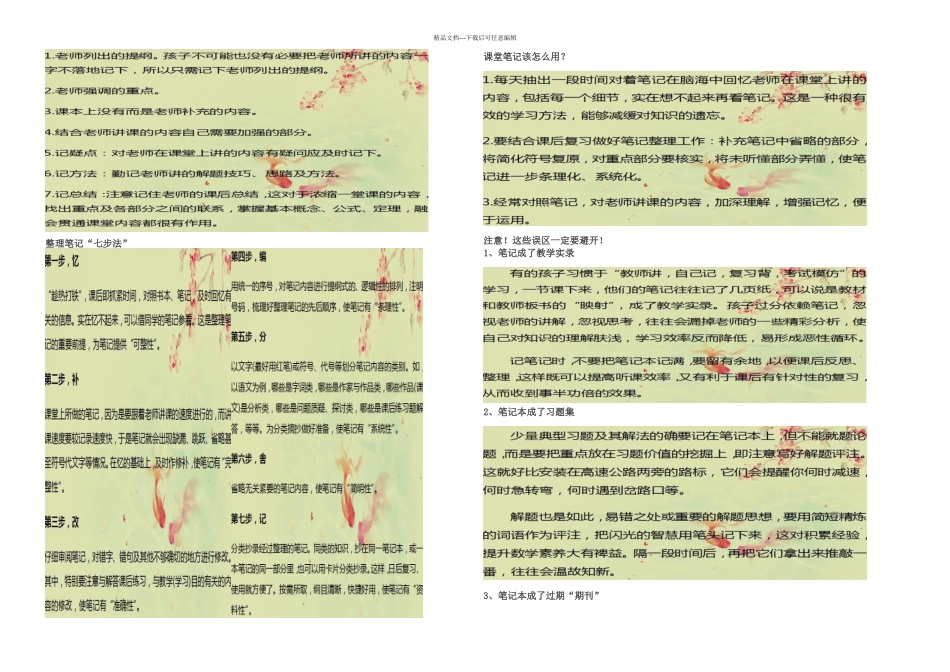 精品文档---下载后可任意编辑
1.老师列出的提纲。孩子不可能也没有必要把老师所讲的内容一
字不落地记下，所以只需记下老师列出的提纲。
2.老师强调的重点。
3.课本上没有而是老师补充的内容。
4.结合老师讲课的内容自己需要加强的部分。
5.记疑点：对老师在课堂上讲的内容有疑问应及时记下。
6.记方法：勤记老师讲的解题技巧、思路及方法。
7.记总结：注意记住老师的课后总结，这对于浓缩一堂课的内容，
找出重点及各部分之间的联系，掌握基本概念、公式、定理，融
会贯通课堂内容都很有作用。
整理笔记“七步法”
第一步，忆
“趁热打铁”，课后即抓紧时间，对照书本、笔记，及时回忆有
关的信息。实在忆不起来，可以借同学的笔记参看。这是整理笔
记的重要前提，为笔记提供“可整性”。
第二步，补
课堂上所做的笔记，因为是要跟着老师讲课的速度进行的，而讲
课速度要较记录速度快，于是笔记就会出现缺漏、跳跃、省略甚
至符号代文字等情况。在忆的基础上，及时作修补，使笔记有“完
整性”。
第三步，改
仔细审阅笔记，对错字、错句及其他不够确切的地方进行修改。
其中，特别要注意与解答课后练习，与教学(学习)目的有关的内
容的修改，使笔记有“准确性”。
第四步，编
用统一的序号，对笔记内容进行提纲式的、逻辑性的排列，注明
号码，梳理好整理笔记的先后顺序，使笔记有“条理性”。
第五步，分
以文字(最好用红笔)或符号、代号等划分笔记内容的类别。如
以语文为例，哪些是字词类，哪些是作家与作品类，哪些作品(课
文)是分析类，哪些是问题质疑、探讨类，哪些是课后练习题解
答，等等。为分类摘抄做好准备，使笔记有“系统性”。
第六步，舍
省略无关紧要的笔记内容，使笔记有“简明性”。
第七步，记
分类抄录经过整理的笔记。同类的知识，抄在同一笔记本，或一
本笔记的同一部分里，也可以用卡片分类抄录。这样，日后复习、
使用就方便了。按需所取，纲目清晰，快捷好用，使笔记有“资
料性”。
课堂笔记该怎么用？
1.每天抽出一段时间对着笔记在脑海中回忆老师在课堂上讲的
内容，包括每一个细节，实在想不起来再看笔记。这是一种很有
效的学习方法，能够减缓对知识的遗忘。
2.要结合课后复习做好笔记整理工作：补充笔记中省略的部分，
将简化符号复原，对重点部分要核实，将未听懂部分弄懂，使笔
记进一步条理化、系统化。
3.经常对照笔记，对老师讲课的内容，加深理解，增强记忆，便
于运用。
注意！这些误区一定要避开！
1、笔记成了教学实录
有的孩子习惯于“教师讲，自己记，复习背，考试模仿”的
学习，一节课下来，他们的笔记往往记了几页纸，可以说是教材
和教师板书的“映射”，成了教学实录。孩子过分依赖笔记，忽
视老师的讲解，忽视思考，往往会漏掉老师的一些精彩分析，使
自己对知识的理解肤浅，学习效率反而降低，易形成恶性循环。
记笔记时，不要把笔记本记满，要留有余地，以便课后反思、
整理，这样既可以提高听课效率，又有利于课后有针对性的复习，
从而收到事半功倍的效果。
2、笔记本成了习题集
少量典型习题及其解法的确要记在笔记本上，但不能就题论
题，而是要把重点放在习题价值的挖掘上，即注意写好解题评注。
这就好比安装在高速公路两旁的路标，它们会提醒你何时减速，
何时急转弯，何时遇到岔路口等。
解题也是如此，易错之处或重要的解题思想，要用简短精炼
的词语作为评注，把闪光的智慧用笔头记下来，这对积累经验，
提升数学素养大有裨益。隔一段时间后，再把它们拿出来推敲一
番，往往会温故知新。
3、笔记本成了过期“期刊”